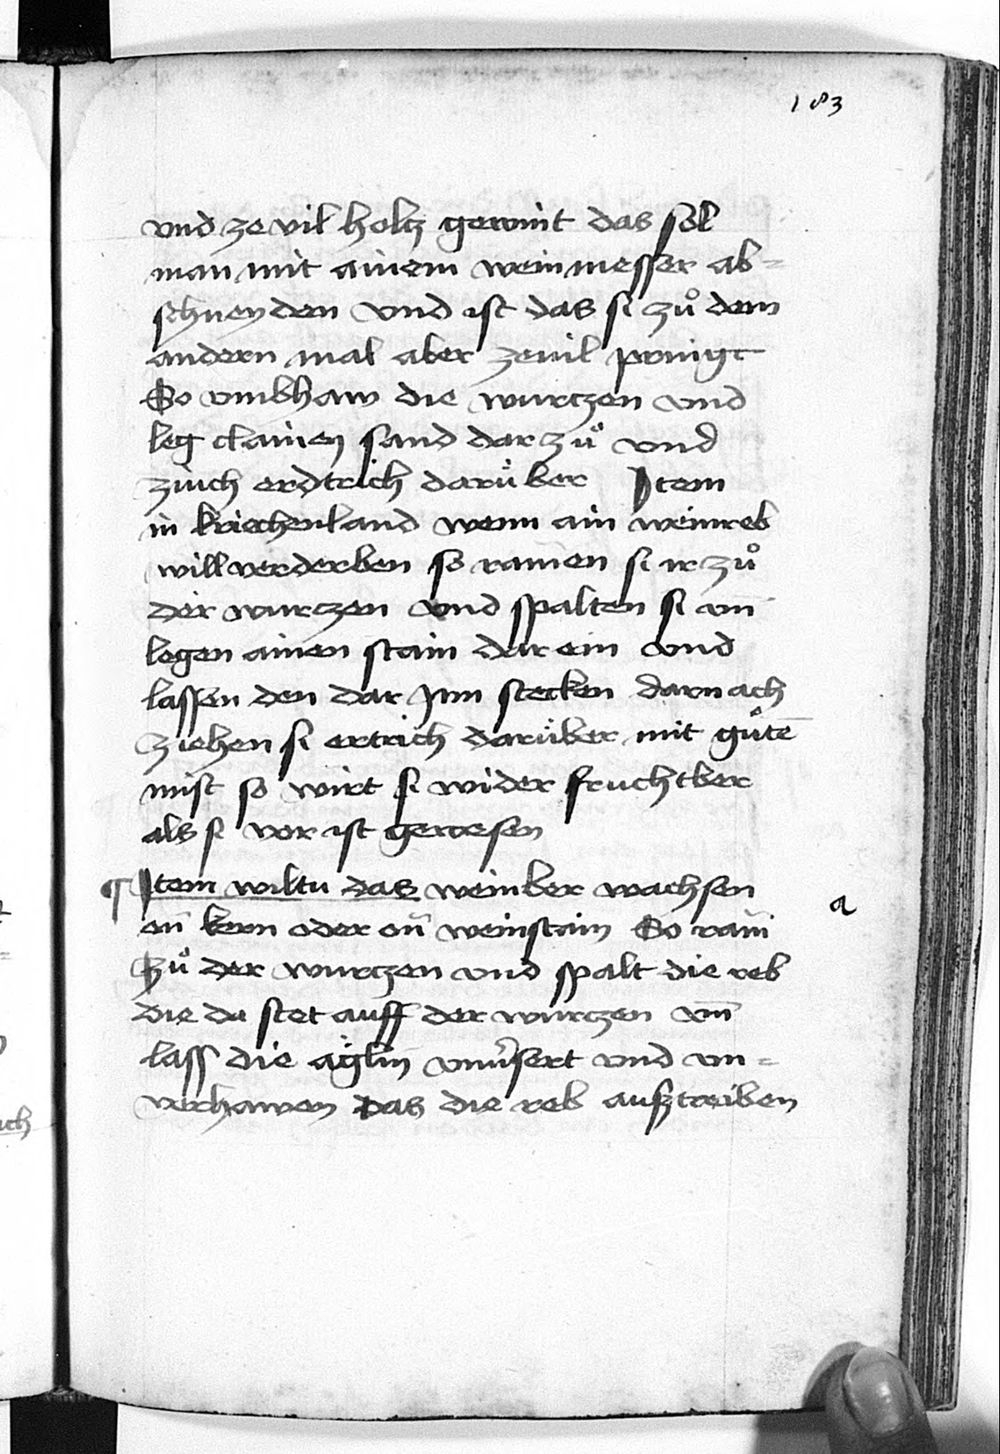 183
vnd ze vil holtz gewint das sol
man mit ainem weinmesser ab=
schneyden vnd ist das si zuͦ dem
andern mal aber zeuil pringt
So vmbhaw die wurtzen vnd
leg clainen sand dar zuͦ vnd
zuich erdtrich daruͤber Item
in kriechenland wenn ain weinreb
will verderben so ramen si ir zuͦ
der wurczen vnd spalten si vn̄
legen ainen stain dar ein vnd
lassen den dar Inn stecken darnach
ziehen si ertrich daruͤber mit guͦtē
mist so wirt si wider fruchtber
als si vor ist gewesen
¶ Item wiltu das weinber wachsen
on̄ kern oder on̄ weinstain So ram̄
Zuͦ der wurczen vnd spalt die reb
die du stet auff der wurczen vn̄
lass die aͤglin vnuersert vnd vn=
verhawen Das die reb ausztreiben
a